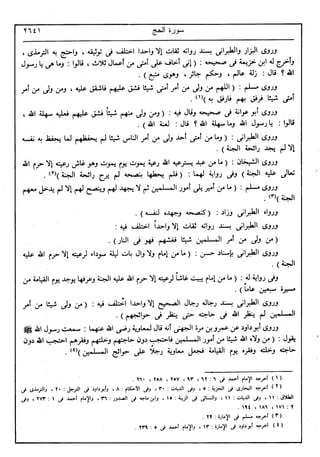 سورة الحج ٢٦٤١
وروى البزار والطبرانى بسند رواته ثقات إلا واحدا اختلف فى توثيقه ، واحتج به الترمذى ،
وأخرج له ابن خزيمة فى صحيحه : (إنى أخاف على أمتى من أعمال ثلاث ، قالوا : وما هى يا رسول
الله ؟ قال : زلة عالم ، وحكم جائر ، وهوى متبع) .
وروى مسلم : (اللهم من ولى من أمر أمتى شيئا فشق عليهم فاشقق عليه ، ومن ولى من أمر
أمتى شيئا فرفق بهم فارفق به)(١) .
وروى أبو عوانة فى صحيحه وقال فيه : (ومن ولى منهم شيئاً فشق عليهم فعليه بهلة الله ،
قالوا : يا رسول الله وما بهلة الله ؟ قال : لعنة الله) .
وروى الطبرانى : (ما من أمتى أحد ولى من أمر الناس شيئا لم يحفظهم لما يحفظ به نفسه
إلا لم يجد رائحة الجنة) .
وروى الشيخان : (ما من عبد يسترعيه الله رعية يموت يوم يموت وهو غاش رعيته إلا حرم الله
تعالى عليه الجنة) وفى رواية لهما : (فلم يحفظها بنصحه لم يرح رائحة الجنة)(٢) .
وروى مسلم : (ما من أمير يلى أمور المسلمين ثم لا يجهد لهم وينصح لهم إلا لم يدخل معهم
الجنة)(٣) .
ورواه الطبرانى وزاد : (كنصحه وجهده لنفسه) .
وروى الطبرانى بسند رواته ثقات إلا واحداً اختلف فيه :
(من ولى من أمر المسلمين شيئا فغشهم فهو فى النار) .
وروى الطبرانى بإسناد حسن : (ما من إمام ولا وال بات ليلة سوداء لرعيته إلا حرم الله عليه
الجنة) .
وفى رواية له : (ما من إمام يبيت غاشاً لرعيته إلا حرم الله عليه الجنة وعرفها يوجد يوم القيامة من
مسيرة سبعين عاماً) .
وروى الطبرانى بسند رجاله رجال الصحيح إلا واحدا اختلف فيه : (من ولى شيئا من أمر
المسلمين لم ينظر الله فى حاجته حتى ينظر فى حوائجهم) .
وروى أبو داود عن عمرو بن مرة الجهنى أنه قال لمعاوية رضى الله عنهما : سمعت رسول الله ﷺ
يقول : (من ولاه الله شيئا من أمور المسلمين فاحتجب دون حاجتهم وخلتهم وفقرهم احتجب الله دون
حاجته وخلته وفقره يوم القيامة فجعل معاوية رجلاً على حوائج المسلمين)(٤) .
(١) أخرجه الإمام أحمد فى ٦ : ٦٢ ، ٩٣ ، ٢٥٧ ، ٢٥٨ ، ٢٦٠ .
(٢) أخرجه البخارى فى الجزية : ٥ ، وفى الديات : ٣٠ ، وفى الأحكام : ٨ ، وأبو داود فى الترجل : ٢٠ ، والترمذى فى
الطلاق : ١١ ، وفى الديات : ١١ ، والنسائى فى الزينة : ١٥ ، وابن ماجه فى الصدور : ٣٦ ، والإمام أحمد فى ١ : ٢٧٣ ، وفى
٢ : ١٧١ ، ١٨٦ ، ١٩٤ .
(٣) أخرجه مسلم فى الإمارة : ٢٢ .
(٤) أخرجه أبو داود فى الإمارة : ١٣ ، والإمام أحمد فى ٥ : ٢٣٩ .